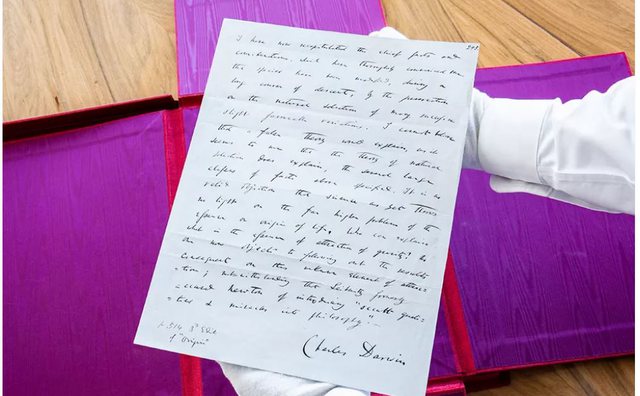 I have now recapitulated the chief facts and
considerations, which have thoroughly convinced me
that species have been modified, during a
long course of descent, by the preservation
or the natural selection of many successive
slight favourable variations. I cannot believe
that a false theory would explain, as it
seems to me that the theory of natural
selection does explain, the several large
classes of facts above specified. It is no
valid objection that science as yet throws
no light on the far higher problem of the
essence or origin of life. Who can explain
what is the essence of attraction of gravity? No
one now objects to following out the results
consequent on this unknown element of attrac
-tion; notwithstanding that Leibnitz formerly
accused Newton of introducing "occult quali-
ties & miracles into philosophy".—
Charles Darwin
p 514 3d Edit
of "Origin"